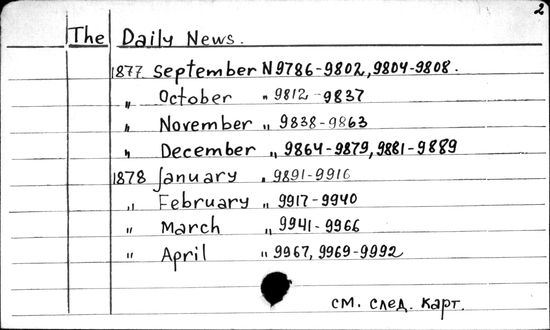 2
The Daily News.
1877 September N 9786-9802, 9804-9808.
„ October „ 9812-9837
„ November „ 9838-9863
„ December „ 9864-9879, 9881-9889
1878 January „ 9891-9916
„ February „ 9917-9940
„ March „ 9941-9966
„ April „ 9967, 9969-9992
см. след. карт.